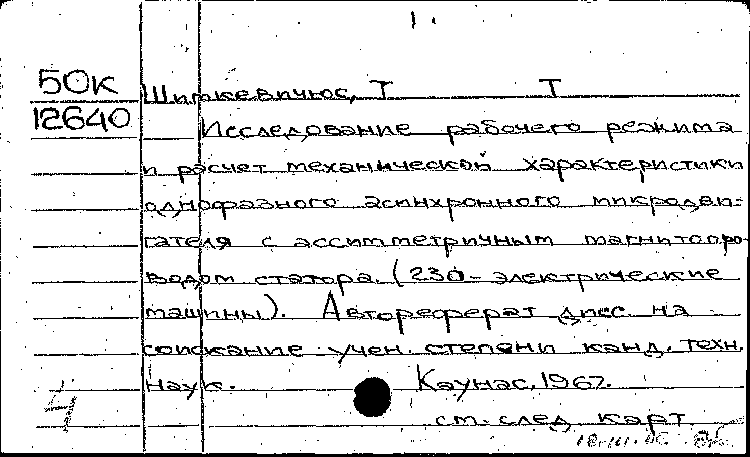 1.
50К
12640
Шимкевичюс, Т Т
Исследование рабочего режима
и расчет механической характеристики
однофазного асинхронного микродви-
гателя с ассимметричным магнитопро-
водом статора. (230 - электрические
машины). Автореферат дисс. на
соискание учен. степени канд. техн.
наук. Каунас, 1967.
4
см. след карт